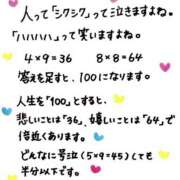 人って「シクシク」って泣きますよね。
「ハハハハ」って笑いますよね。
4×9=36 8×8=64
答えを足すと、100になります。
人生を「100」とすると、
悲しいことは「36」、嬉しいことは「64」で
倍近くあります。
どんなに号泣(5×9=45)しても
半分以下です。